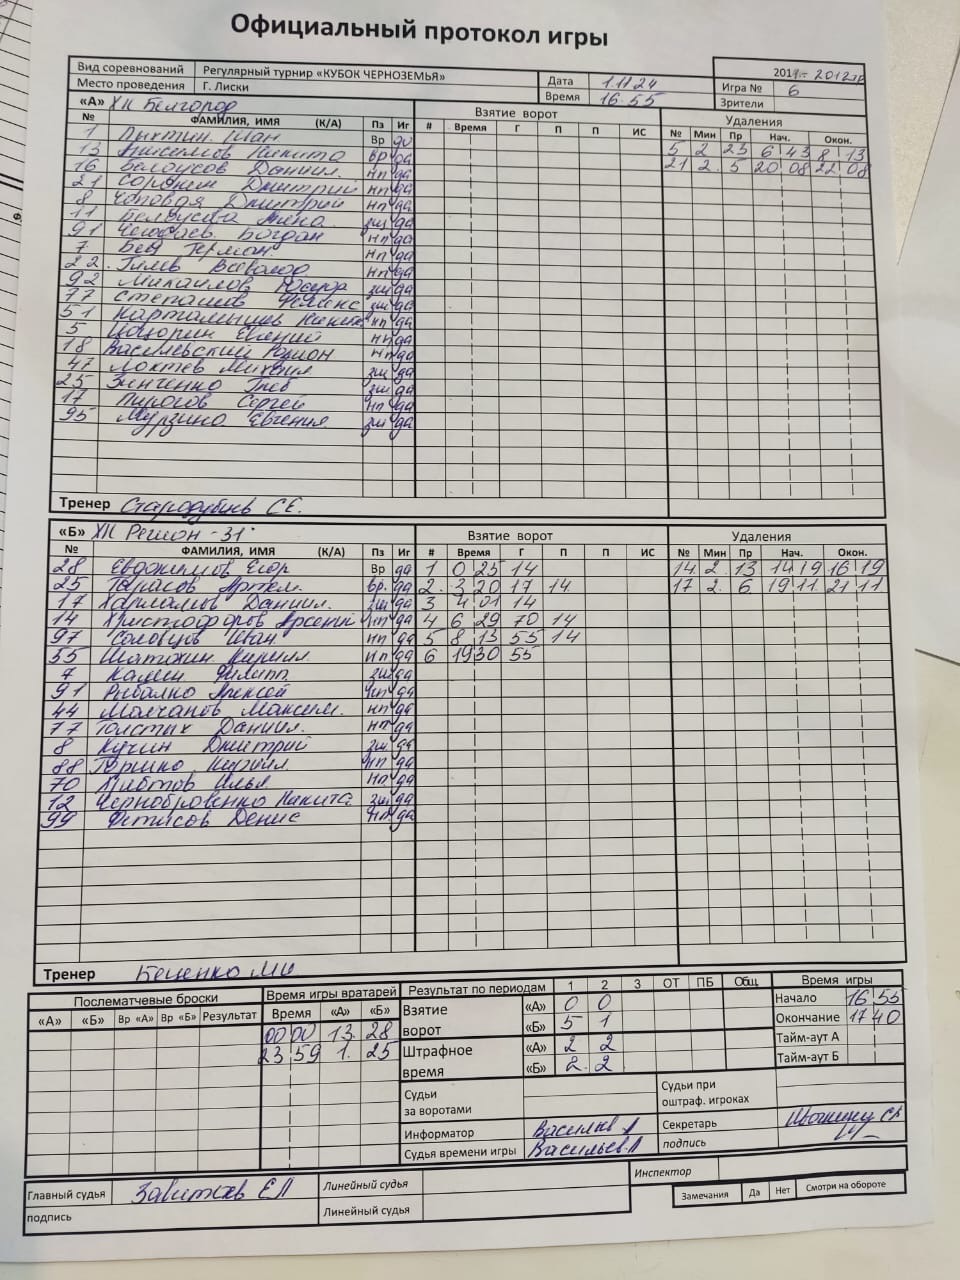 Официальный протокол игры
Вид соревнований Регулярный турнир «КУБОК ЧЕРНОЗЕМЬЯ» Дата 1.11.24 2011-2012гр
Место проведения Г. Лиски Время 16.55 Игра № 6
Зрители
«А» ХК Белгород Взятие ворот Удаления
№ ФАМИЛИЯ, ИМЯ (К/А) Пз Иг # Время Г П П ИС № Мин Пр Нач. Окон.
1 Иван Вр да 5 2 23 6 43 8 13
13 Анисимов Никита вр да 21 2. 5 20 08 22 08
16 Белоусов Даниил нп да
21 Сорокин Дмитрий нп да
8 Дмитрий нп да
11 Белоусова зщ да
91 Богдан нп да
7 Бей Герман нп да
22. Всеволод нп да
92 Михайлов зщ да
77 Степашов Феликс зщ да
51 Карталышев Никита нп да
5 Евгений нп да
18 Василевский Родион нп да
47 Локтев Михаил зщ да
25 Зинченко Глеб зщ да
17 Пирогов Сергей нп да
95 Мурзина Евгения зщ да
Тренер Стародубцев С.Е.
«Б» ХК Регион-31 Взятие ворот Удаления
№ ФАМИЛИЯ, ИМЯ (К/А) Пз Иг # Время Г П П ИС № Мин Пр Нач. Окон.
28 Евдокимов Егор Вр да 1 0 25 14 14. 2. 13 14 19 16 19
25 Тарасов Артем. вр. да 2. 3 20 17 14. 17 2. 6. 19 11 21 11
17 Харламов Даниил. зщ да 3 4 01 14
14 Христофоров Арсений нп да 4 6 29 70 14
97 Соловцов Иван нп да 5 8 13 55 14
55 Шатохин Кирилл. нп да 6 19 30 55
7 Филипп зщ да
91 Рыбалко Алексей нп да
44 Молчанов Максим. нп да
77 Толстых Даниил. нп да
8 Кучин Дмитрий зщ да
88 Кирилл. нп да
70 Илья нп да
12 Чернобровенко Никита зщ да
99 Фетисов Денис нп да
Тренер Беленко МИ
Послематчевые броски Время игры вратарей Результат по периодам 1 2 3 ОТ ПБ Общ. Время игры
«А» «Б» Вр «А» Вр «Б» Результат Время «А» «Б» Взятие ворот «А» 0 0 Начало 16 55
00 00 13. 28 «Б» 5 1 Окончание 17 40
23 59 1. 25 Штрафное время «А» 2 2 Тайм-аут А
«Б» 2. 2 Тайм-аут Б
Судьи за воротами Судьи при оштраф. игроках
Информатор Васильев Л Секретарь
Судья времени игры Васильев.Л подпись
Главный судья Линейный судья Инспектор
подпись Линейный судья Замечания Да Нет Смотри на обороте